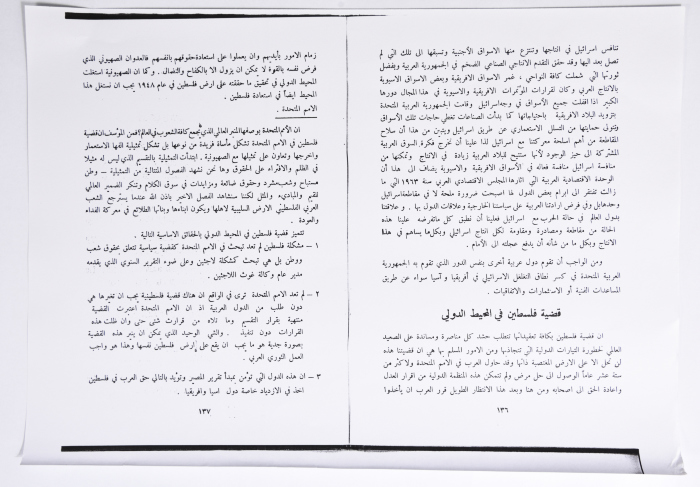 تنافس اسرائيل في انتاجها وتنتزع منها الاسواق الأجنبية وتسبقها الى تلك التي لم
تصل بعد اليها وقد حقق التقدم الانتاجي الصناعي الضخم في الجمهورية العربية وبفضل
ثورتها التي شملت كافة النواحي ، غمر الاسواق الافريقية وبعض الاسواق الاسيوية
بالانتاج العربي وكان لقرارات المؤتمرات الافريقية والاسيوية في هذا المجال دورها
الكبير اذا اقفلت جميع الأسواق في وجه اسرائيل وقامت الجمهورية العربية المتحدة
بتزويد البلاد الافريقية باحتياجاتها كما بدأت الصناعات تغطي حاجات تلك الأسواق
وتتولى حمايتها من التسلل الاستعماري عن طريق اسرائيل ويتبين من هذا أن سلاح
المقاطعة من أهم اسلحة معركتنا مع اسرائيل لذا علينا أن نخرج فكرة السوق العربية
المشتركة الى حيز الوجود لأنها ستتيح للبلاد العربية زيادة في الانتاج وتمكنها من
منافسة اسرائيل منافسة فعالة في الأسواق الافريقية والاسيوية يضاف الى هذا أن
الوحدة الاقتصادية العربية التي اقرها المجلس الاقتصادي العربي سنة ١٩٦٣ التي ما
زالت تفتقر الى ابرام بعض الدول لها اصبحت ضرورة ملحة لا في مقاطعة اسرائيل
وحدها بل وفي فرض ارادتنا العربية على سياستنا الخارجية وعلاقات الدول بها . وعلاقتنا
بدول العالم في حالة الحرب مع اسرائيل فعلينا أن نطبق كل ما تفرضه علينا هذه
الحالة من مقاطعة ومصادرة ومقاومة لكل انتاج اسرائيلي وبكل ما يساهم في هذا
الانتاج وبكل ما من شأنه أن يدفع عجلته الى الأمام .
ومن الواجب أن تقوم دول عربية أخرى بنفس الدور الذي تقوم به الجمهورية
العربية المتحدة في كسر نطاق التغلغل الاسرائيلي في أفريقيا وآسيا سواء عن طريق
المساعدات الفنية أو الاستثمارات والاتفاقيات .
قضية فلسطين في المحيط الدولي
ان قضية فلسطين بكافة تعقيداتها تتطلب حشد كل مناصرة ومساندة على الصعيد
العالمي لخطورة التيارات الدولية التي تتجاذبها ومن الامور المسلم بها هي ان قضيتنا هذه
لن تحل الا على الارض المغتصبة ذاتها وقد حاول العرب في الامم المتحدة ولاكثر من
ستة عشر عاماً الوصول الى حل مرض ولم تتمكن هذه المنظمة الدوليه من اقرار العدل
واعادة الحق الى اصحابه ومن هنا وبعد هذا الانتظار الطويل قرر العرب ان يأخذوا
١٣٦
زمام الامور بأيديهم وان يعملوا على استعادة حقوقهم بانفسهم فالعدوان الصهيوني الذي
فرض نفسه بالقوة لا يمكن ان يزول الا بالكفاح والنضال . وكما ان الصهيونية استغلت
المحيط الدولي في تحقيق ما حققته على ارض فلسطين في عام ١٩٤٨ يجب ان نستغل هذا
المحيط ايضاً في استعادة فلسطين .
الامم المتحدة .
ان الأمم المتحدة بوصفها المنبر العالمي الذي يجمع كافة الشعوب في العالم ! فمن المؤسف ان قضية
فلسطين في الامم المتحدة تشكل مأساة فريدة من نوعها بل تشكل تمثيلية الفها الاستعمار
واخرجها وتعاون على تمثيلها مع الصهيونية . ابتدأت التمثيلية بالتقسيم الذي ليس له مثيلا
في الظلم والافتراء على الحقوق وها نحن نشهد الفصول المتتالية من التمثيلية – وطن
مستباح وشعب مشرد وحقوق ضائعة ومزايدات في سوق الكلام وتنكر الضمير العالمي
للقيم والمبادىء والمثل لكننا سنشاهد الفصل الاخير باذن الله عندما يسترجع الشعب
العربي الفلسطيني الارض السليبية لاهلها ويكون ابناءها وبناتها الطلائع في معركة الفداء
والعودة .
تتميز قضية فلسطين في المحيط الدولي بالحقائق الاساسية التالية .
١ – مشكلة فلسطين لم تعد تبحث في الامم المتحدة كقضية سياسية تتعلق بحقوق شعب
ووطن بل هي تبحث كمشكلة لاجئين وعلى ضوء التقرير السنوي الذي يقدمه
مدير عام وكالة غوث اللاجئين .
٢ – لم تعد الامم المتحدة ترى في الواقع ان هناك قضية فلسطينية يجب ان تعتبرها هي
دون طلب من الدول العربية اذ ان الامم المتحدة اعتبرت القضية
منتهية بقرار التقسيم وما تلاه من قرارت شتى حتى وان ظلت هذه
القرارات دون تنفيذ . والشيء الوحيد الذي يمكن ان ينير هذه القضية
بصورة جدية هو ما يجب ان يقع على ارض فلسطين نفسها وهذا هو واجب
العمل الثوري العربي .
٣ – ان هذه الدول التي تؤمن بمبدأ تقرير المصير وتؤيد بالتالي حق العرب في فلسطين
اخذ في الازدياد خاصة دول اسيا وافريقيا .
١٣٧